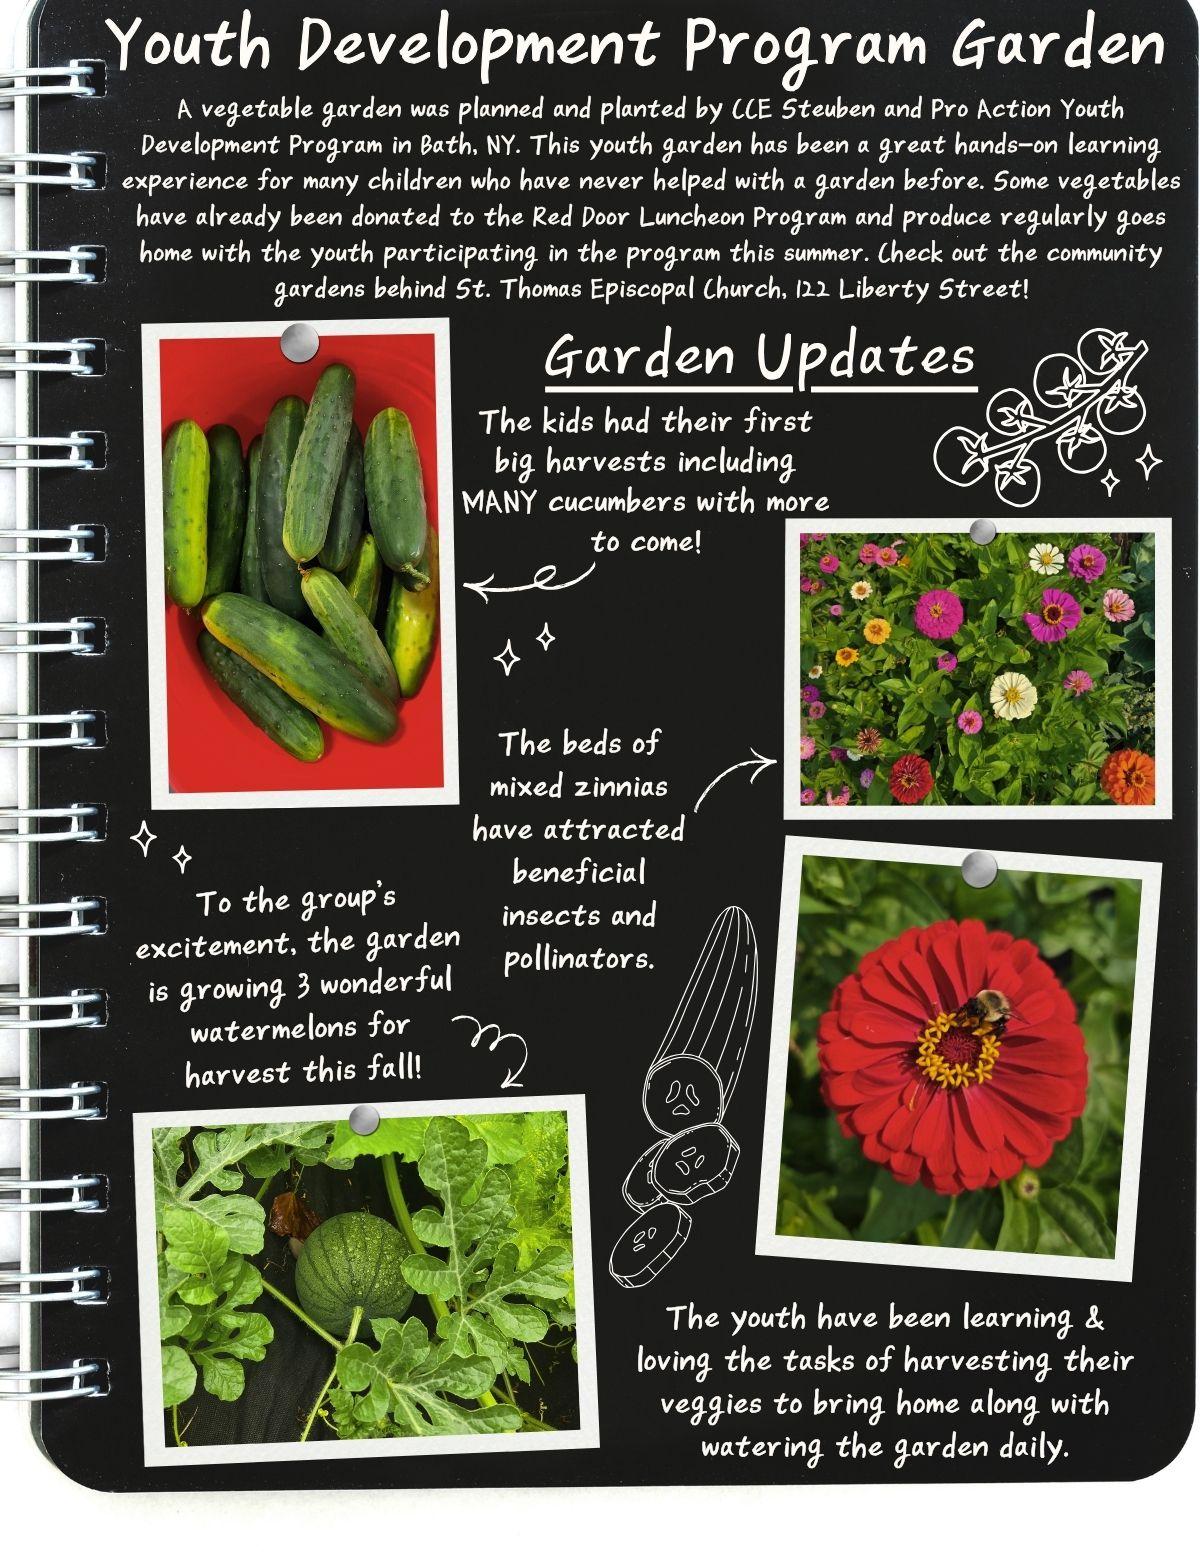 Youth Development Program Garden
A vegetable garden was planned and planted by CCE Steuben and Pro Action Youth
Development Program in Bath, NY. This youth garden has been a great hands-on learning
experience for many children who have never helped with a garden before. Some vegetables
have already been donated to the Red Door Luncheon Program and produce regularly goes
home with the youth participating in the program this summer. Check out the community
gardens behind St. Thomas Episcopal Church, 122 Liberty Street!
Garden Updates
The kids had their first
big harvests including
MANY cucumbers with more
to come!
The beds of
mixed zinnias
have attracted
beneficial
insects and
pollinators.
To the group's
excitement, the garden
is growing 3 wonderful
watermelons for
harvest this fall!
The youth have been learning &
loving the tasks of harvesting their
veggies to bring home along with
watering the garden daily.